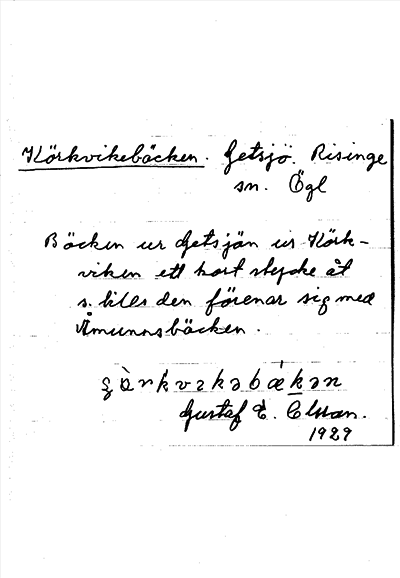 Körkvikebäcken. Getsjö. Risinge
sn. Ögl
Bäcken ur Getsjön ur Körk-
viken ett kort stycke åt
s. tills den förenar sig med
Åmunnsbäcken.
Gustaf E.
1929